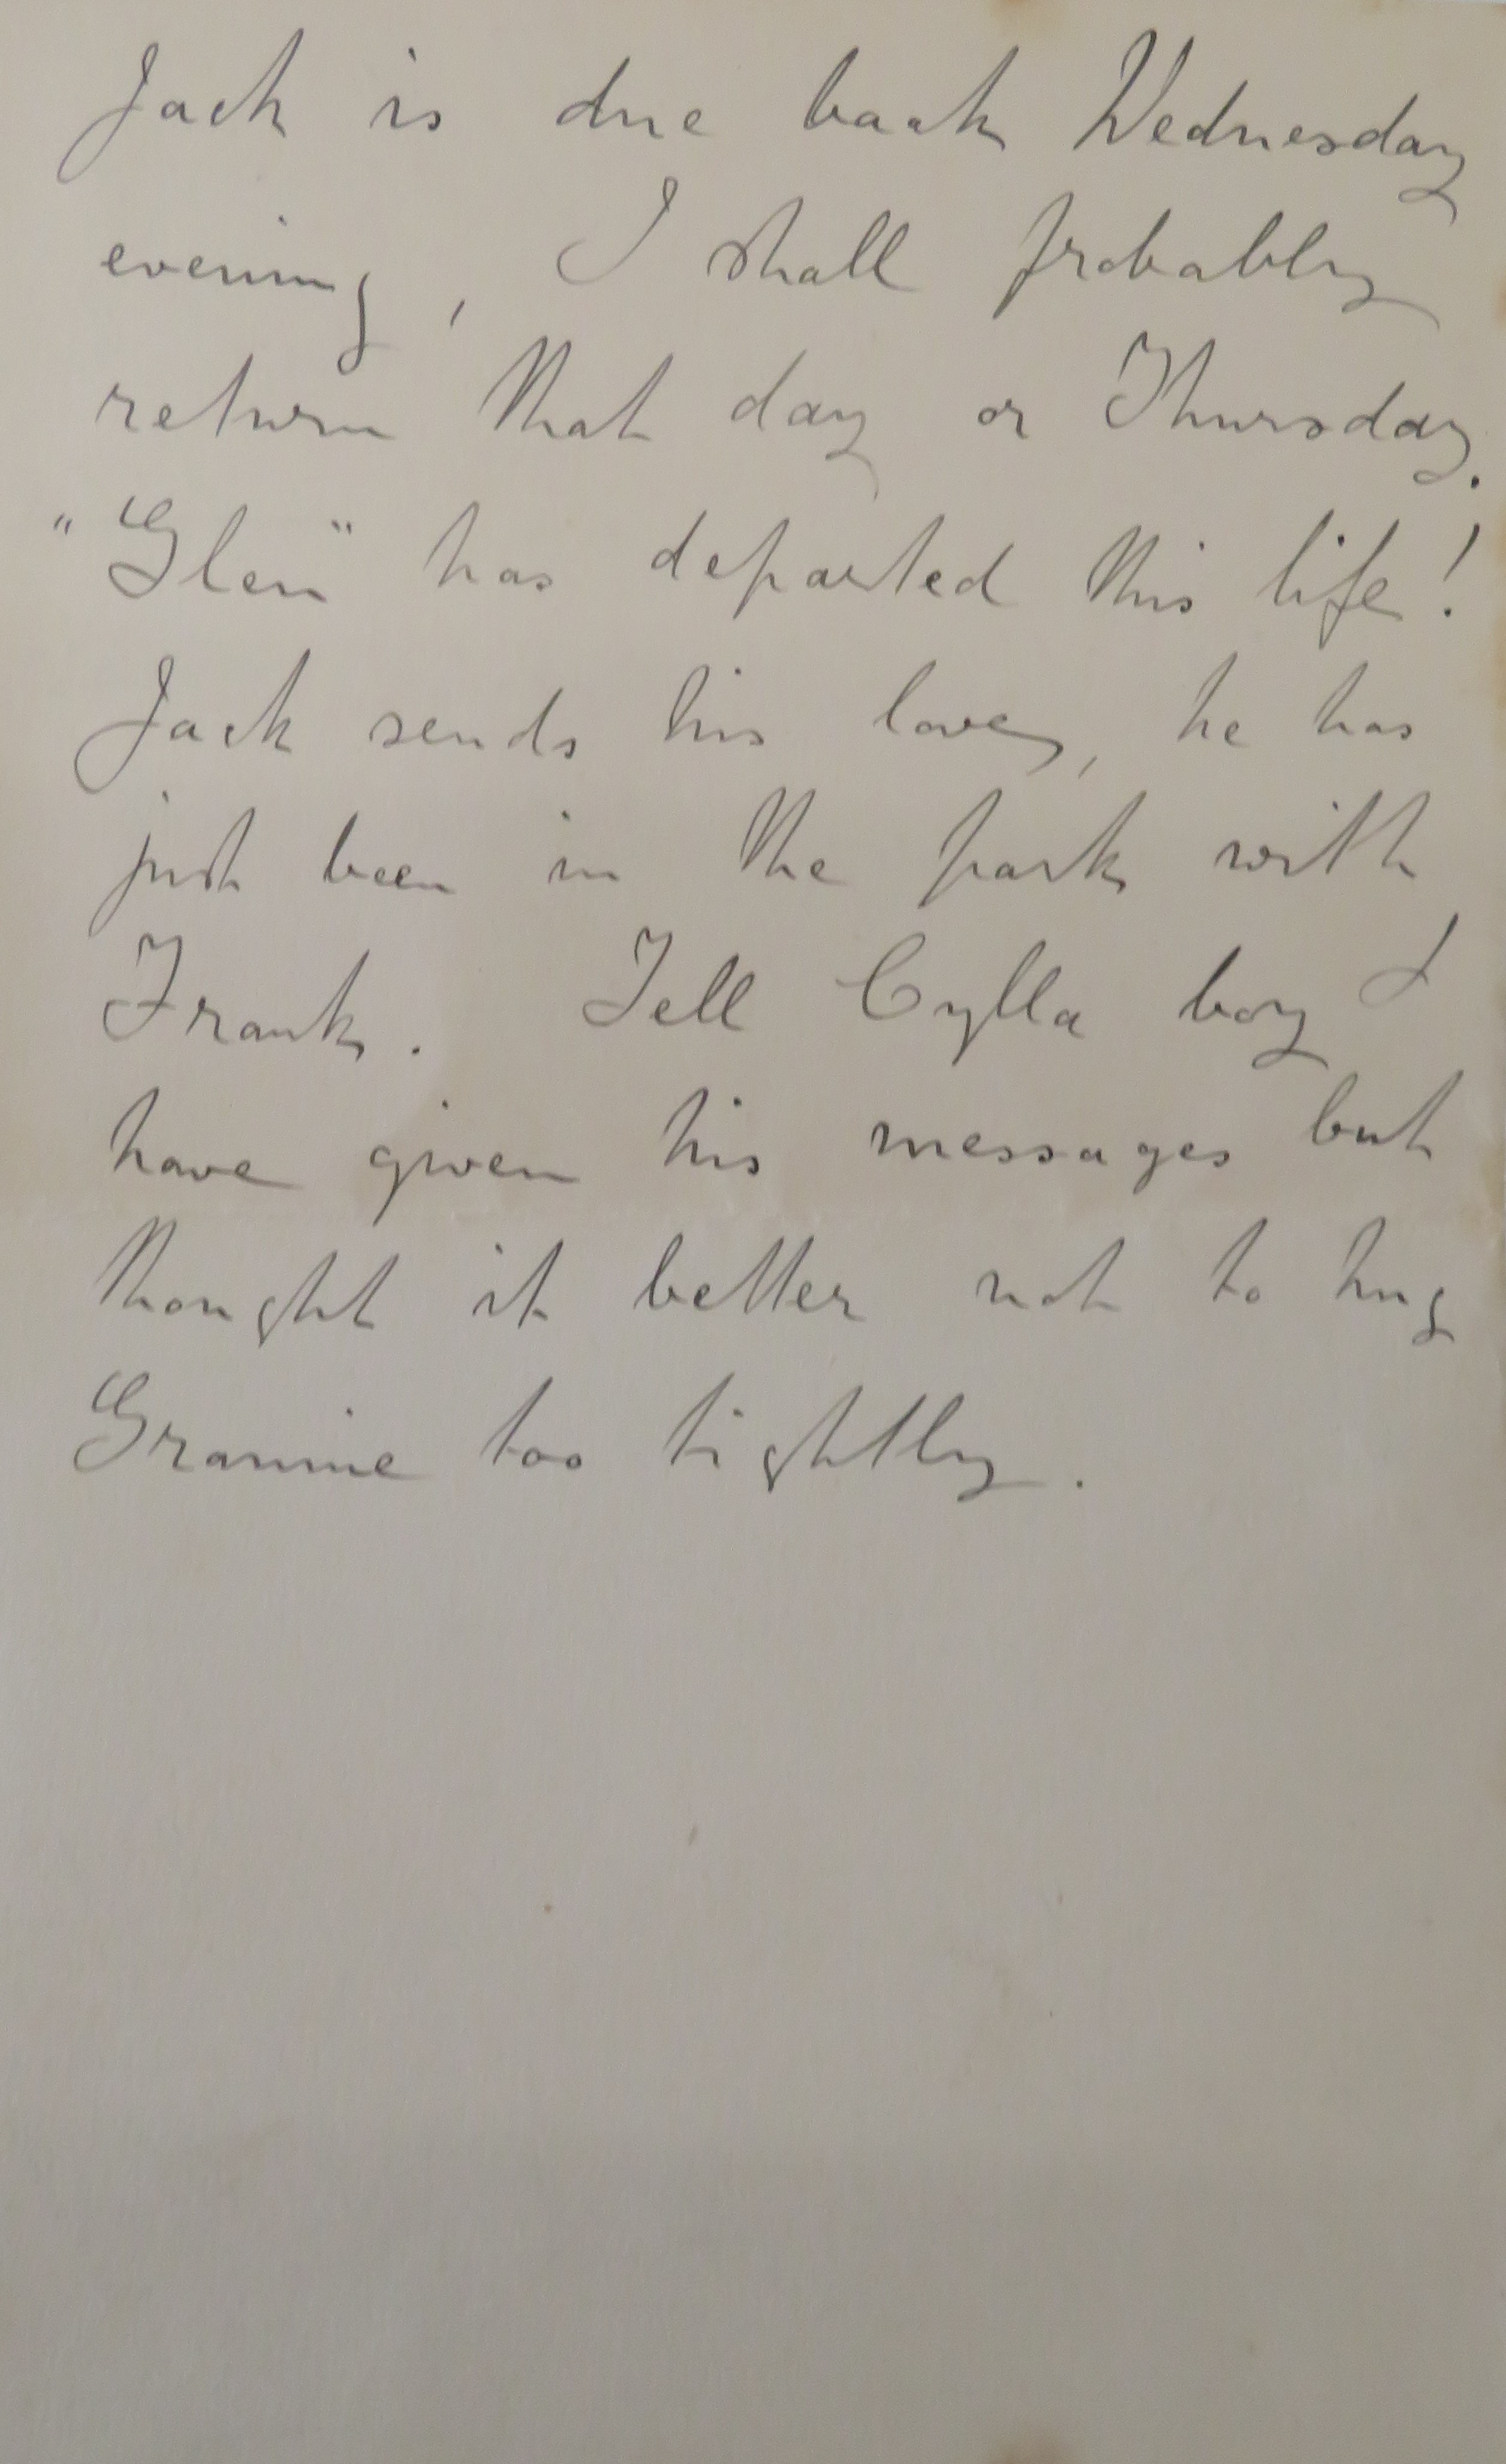 Jack is due back Wednesday
evening, I shall probably
return that day or Thursday.
"Glen" has departed this life!
Jack sends his love, he has
just been in the park with
Frank. Tell Cylla boy I
have given his messages but
thought it better not to hug
Grannie too tightly.